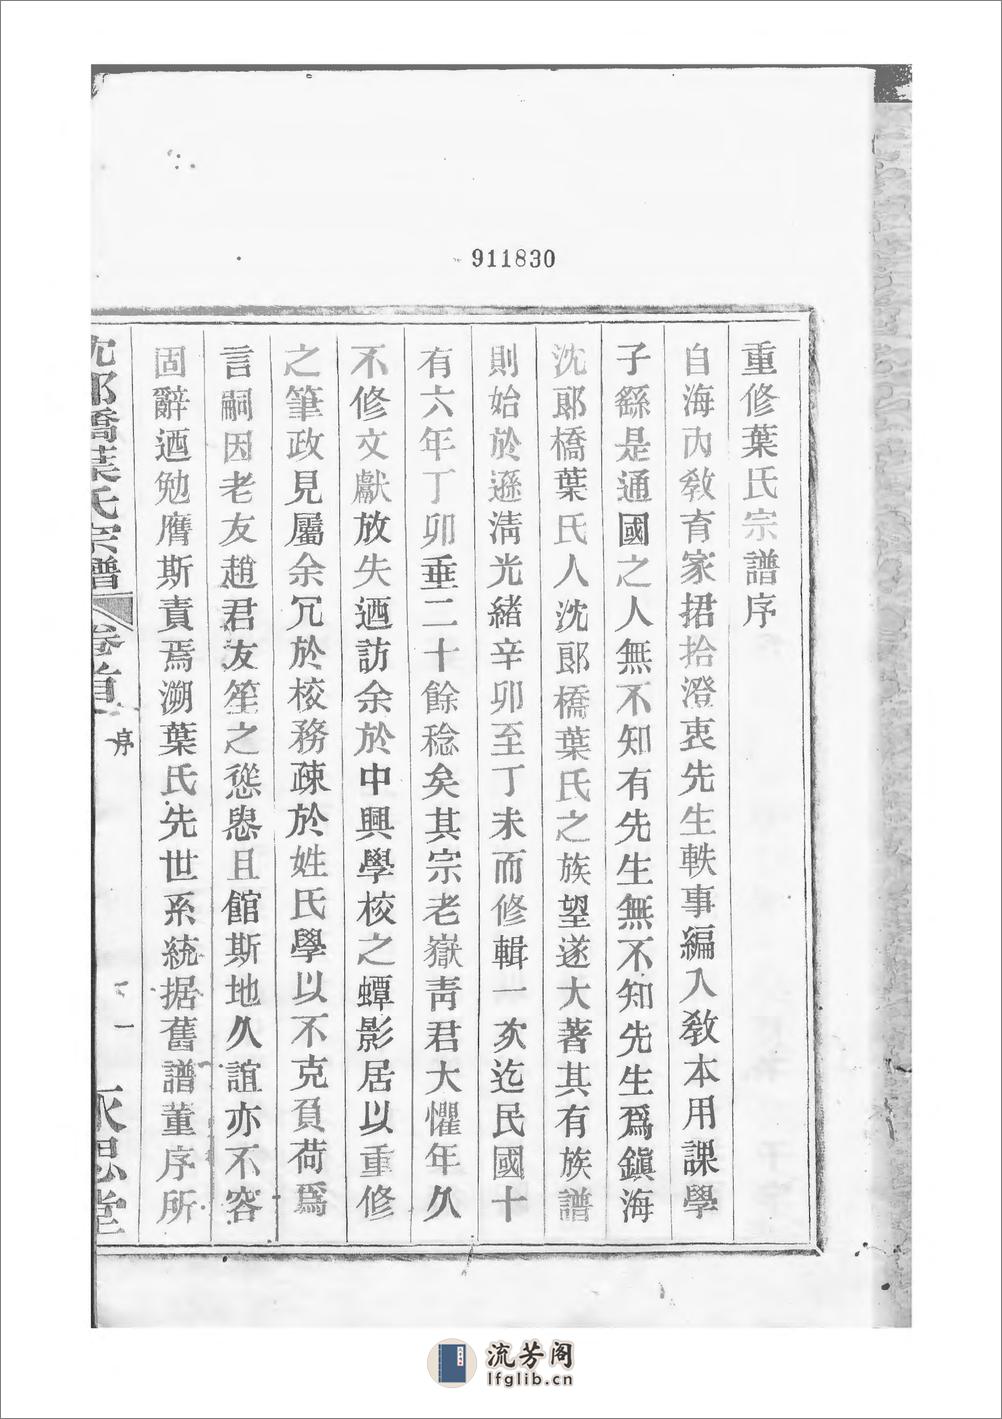 911830
重修葉氏宗譜序
自海內敎育家捃拾澄衷先生軼事編入敎本用課學
子繇是通國之人無不知有先生無不知先生爲鎭海
沈郞橋葉氏人沈郞橋葉氏之族望遂大著其有族譜
則始於遜淸光緒辛卯至丁未而修輯一次迄民國十
有六年丁卯垂二十餘稔矣其宗老嶽靑君大懼年久
不修文獻放失迺訪余於中興學校之蟫影居以重修
之筆政見屬余冗於校務疎於姓氏學以不克負荷爲
言嗣因老友趙君友笙之慫恿且館斯地久誼亦不容
固辭迺勉膺斯責焉溯葉氏先世系統据舊譜董序所
沈郞橋葉氏宗譜 卷首 序 一 永思堂
流芳阁
lfglib.cn